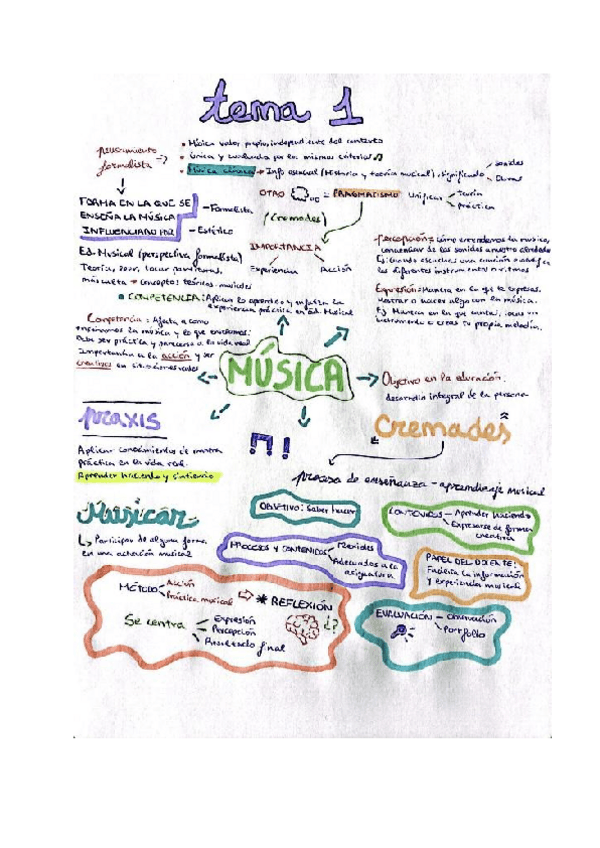 tema 1
pensamiento formalista
• Música valor propio, independiente del contexto
• Única y evaluada por los mismos criterios
• Música clásica → Info esencial (Historia y teoría musical) significado
OTRO = PRAGMATISMO Unificar
teoría
práctica
(Cremades)
FORMA EN LA QUE SE
ENSEÑA LA MÚSICA
INFLUENCIADO POR
- Formalista
- Estético
Ed. Musical (perspectiva formalista)
→ conceptos teóricos musicales
IMPORTANCIA
Experiencia
Acción
Percepción = Cómo entendemos la música,
Ej: Cuando escuchas una canción e identificas
los diferentes instrumentos o ritmos
Expresión: Manera en la que te expresas.
Mostrar o hacer algo con la música.
Ej Manera en la que cantas, tocas un
instrumento o creas tu propia melodía.
• COMPETENCIA: Aplicar lo aprendido y
experiencia práctica en Ed. Musical
Competencia: Afecta a como
enseñamos la música y lo que enseñamos:
Debe ser práctica y parecerse a la vida real
Importancia a la acción y ser
creativos en situaciones reales
MÚSICA
Objetivo en la educación:
desarrollo integral de la persona
praxis
Aplicar conocimientos de manera
práctica en la vida real.
Aprender haciendo y sintiendo
Cremades
proceso de enseñanza-aprendizaje musical
Musicar
↳ Participar de alguna forma
en una actuación musical
OBJETIVO: Saber hacer
CONTENIDOS - Aprender haciendo
Expresarse de formas
creativas
PROCESOS Y CONTENIDOS
Adecuados a la
asignatura
PAPEL DEL DOCENTE:
Facilita la información
y experiencia musical
MÉTODO
Acción
Práctica musical
* REFLEXIÓN
¿?
Se centra
Expresión
Percepción
Resultado final
EVALUACIÓN - Observación
Portfolio